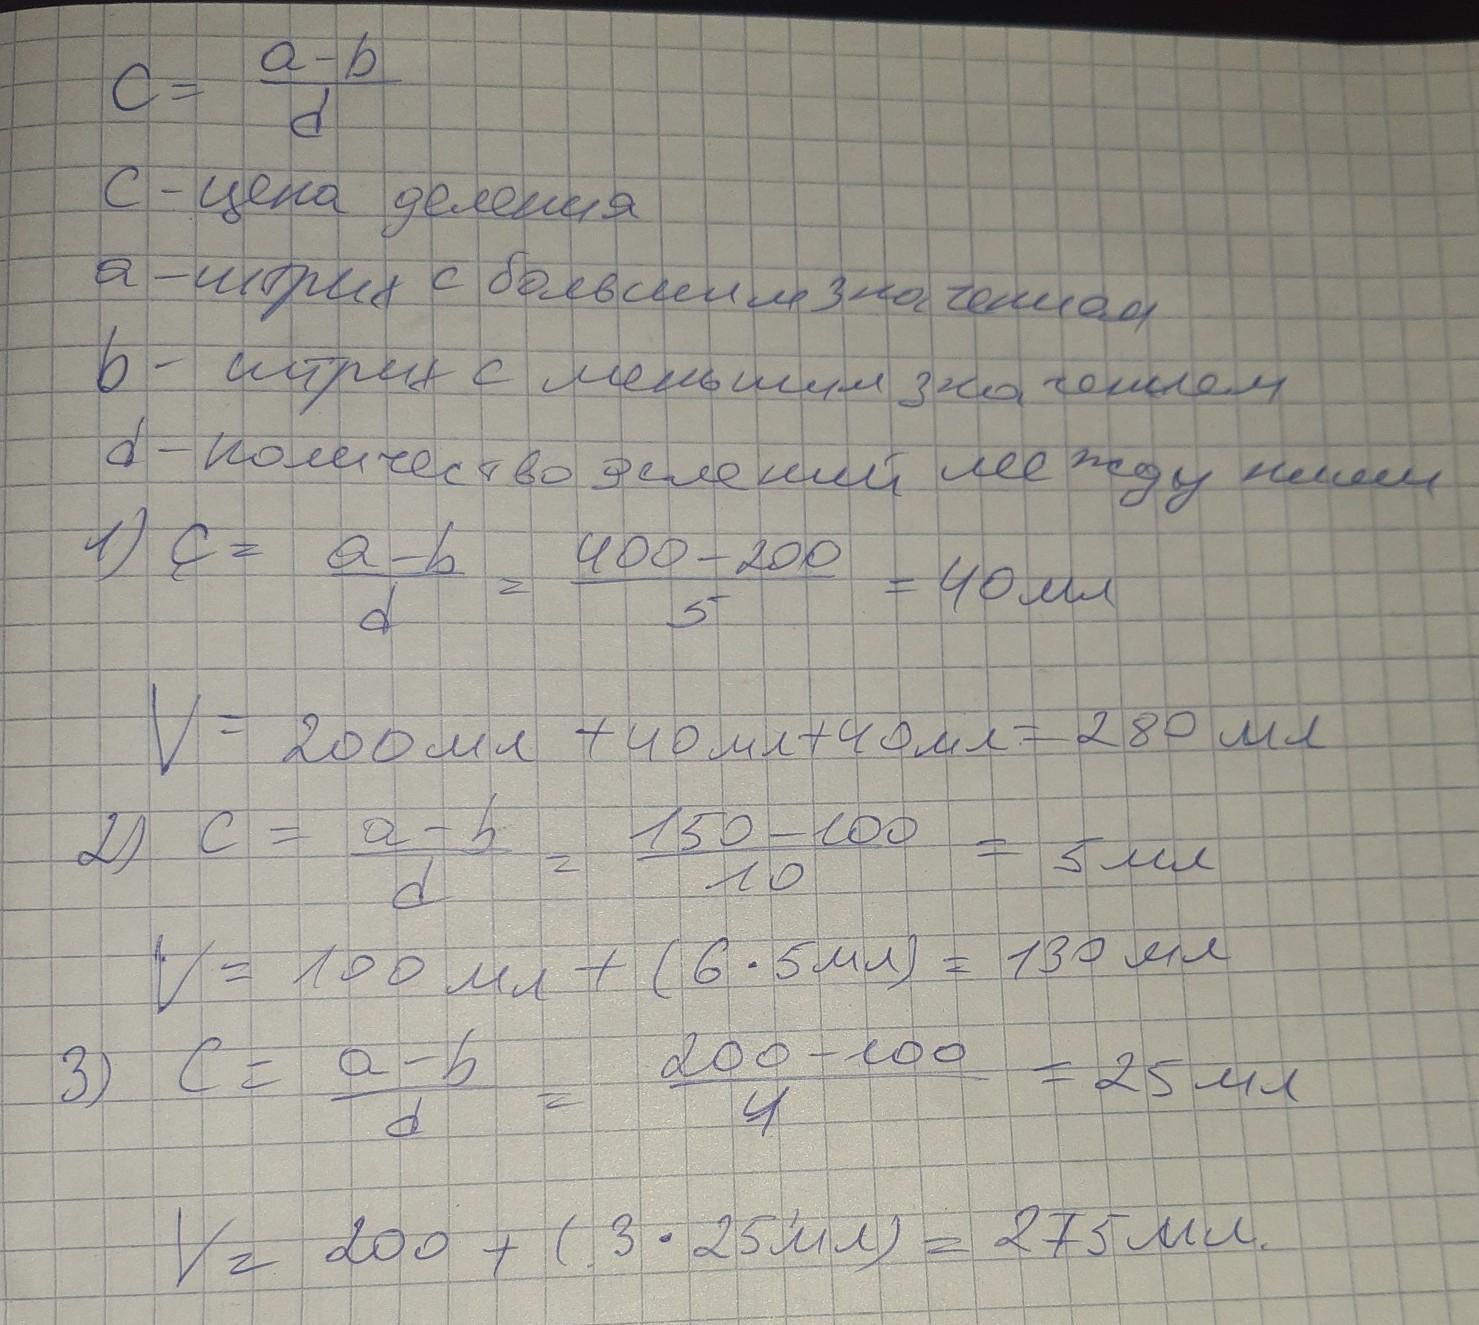 C = a-b / d
C - цена деления
a - штрих с большим значением
b - штрих с меньшим значением
d - количество делений между ними
1) C = a-b / d = 400-200 / 5 = 40 мл
V = 200 мл + 40 мл + 40 мл = 280 мл
2) C = a-b / d = 150-100 / 10 = 5 мл
V = 100 мл + (6 · 5 мл) = 130 мл
3) C = a-b / d = 200-100 / 4 = 25 мл
V = 200 + (3 · 25 мл) = 275 мл.